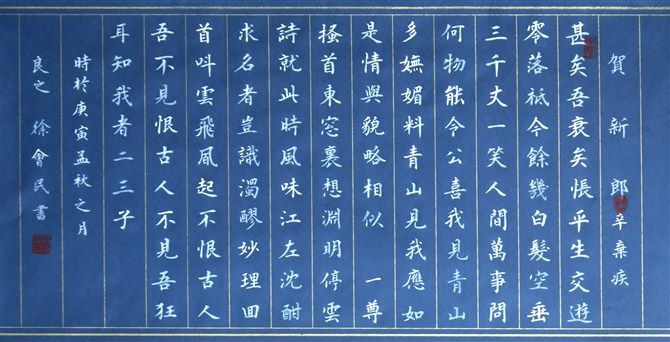 賀新郎 辛棄疾
甚矣吾衰矣悵平生交遊
零落祗今餘幾白髮空垂
三千丈一笑人間萬事問
何物能令公喜我見青山
多嫵媚料青山見我應如
是情與貌略相似 一尊
搔首東窓裏想淵明停雲
詩就此時風味江左沈酣
求名者豈識濁醪妙理回
首叫雲飛風起不恨古人
吾不見恨古人不見吾狂
耳知我者二三子
時於庚寅孟秋之月
良之 徐會民書